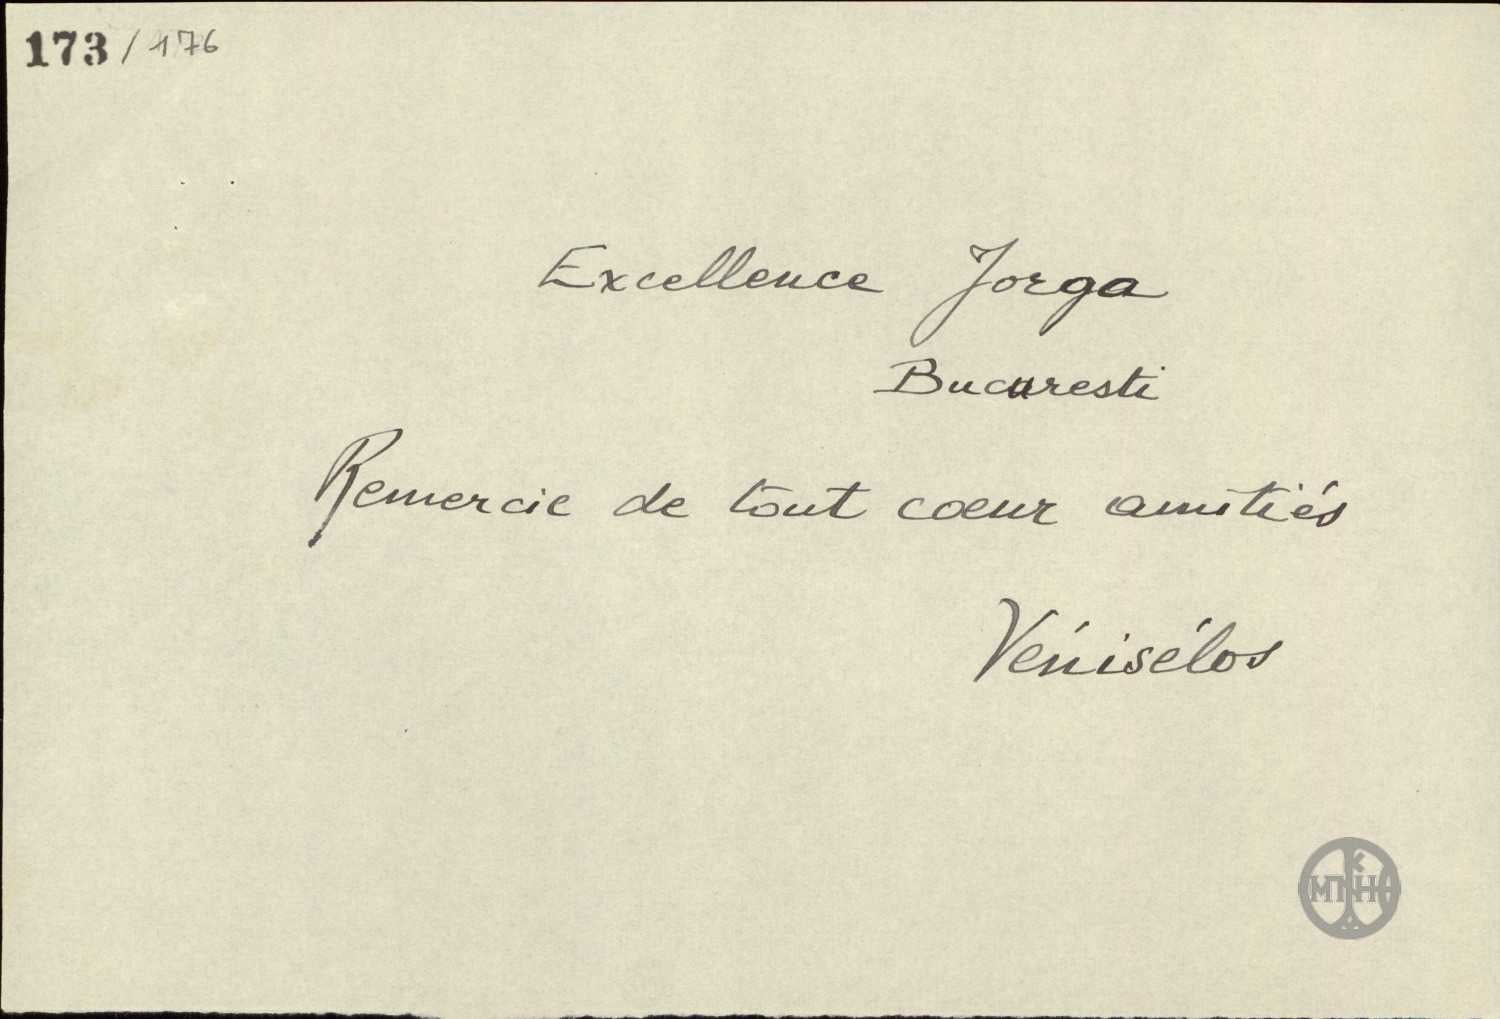 173 / 176
Excellence Jorga
Bucuresti
Remercie de tout cœur amitiés
Vénisélos
ΜΠΗ